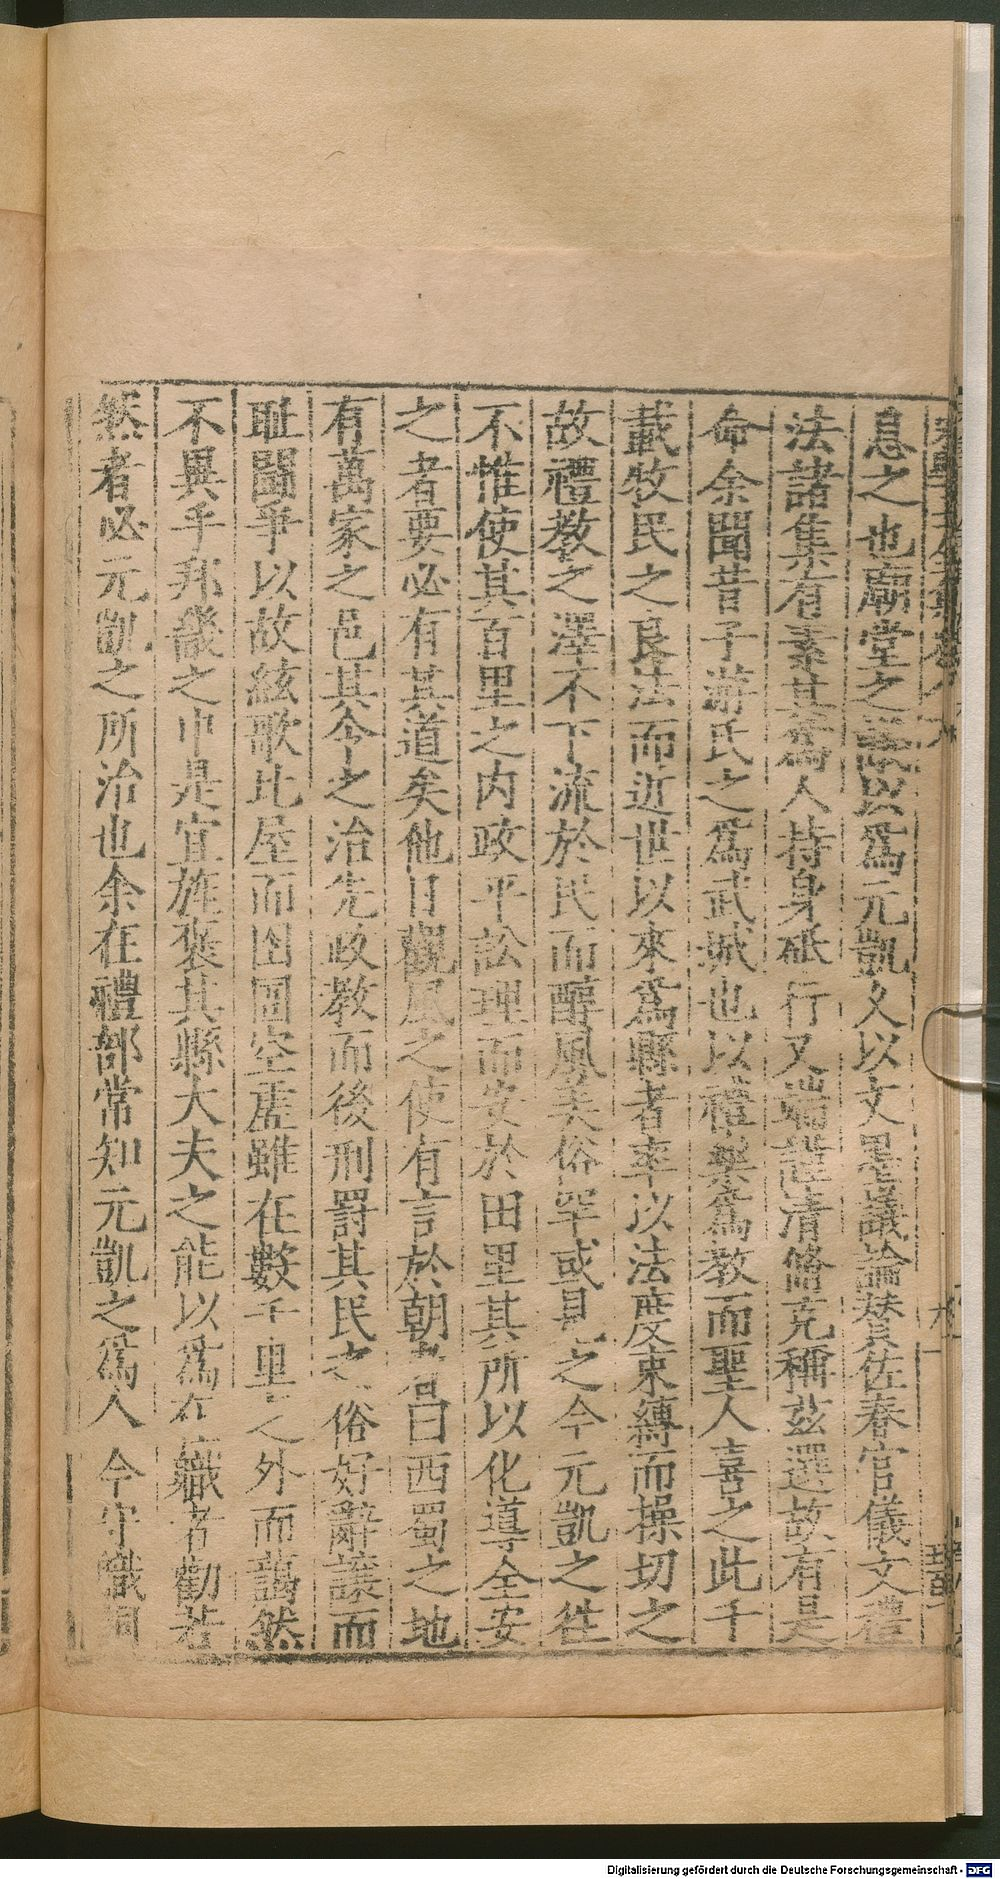 息之也廟堂之議以爲元凱久以文墨議論贊佐春官儀文禮
法諸集有素其爲人持身砥行又端謹清脩克稱茲選故有是
命余聞昔子游氏之爲武城也以禮樂爲教而聖人喜之此千
載牧民之良法而近世以來爲縣者率以法度束縛而操切之
故禮教之澤不下流於民而醇風美俗罕或見之今元凱之徃
不惟使其百里之內政平訟理而安於田里其所以化導全安
之者要必有其道矣他日觀風之使有言於朝者曰西蜀之地
有萬家之邑其令之治先政教而後刑罰其民之俗好辭讓而
耻鬪爭以故絃歌比屋而囹圄空虛雖在數千里之外而藹然
不異乎邦畿之中是宜旌褒其縣大夫之能以爲在職者勸若
然者必元凱之所治也余在禮部常知元凱之爲人 今守職
Digitalisierung gefördert durch die Deutsche Forschungsgemeinschaft - DFG